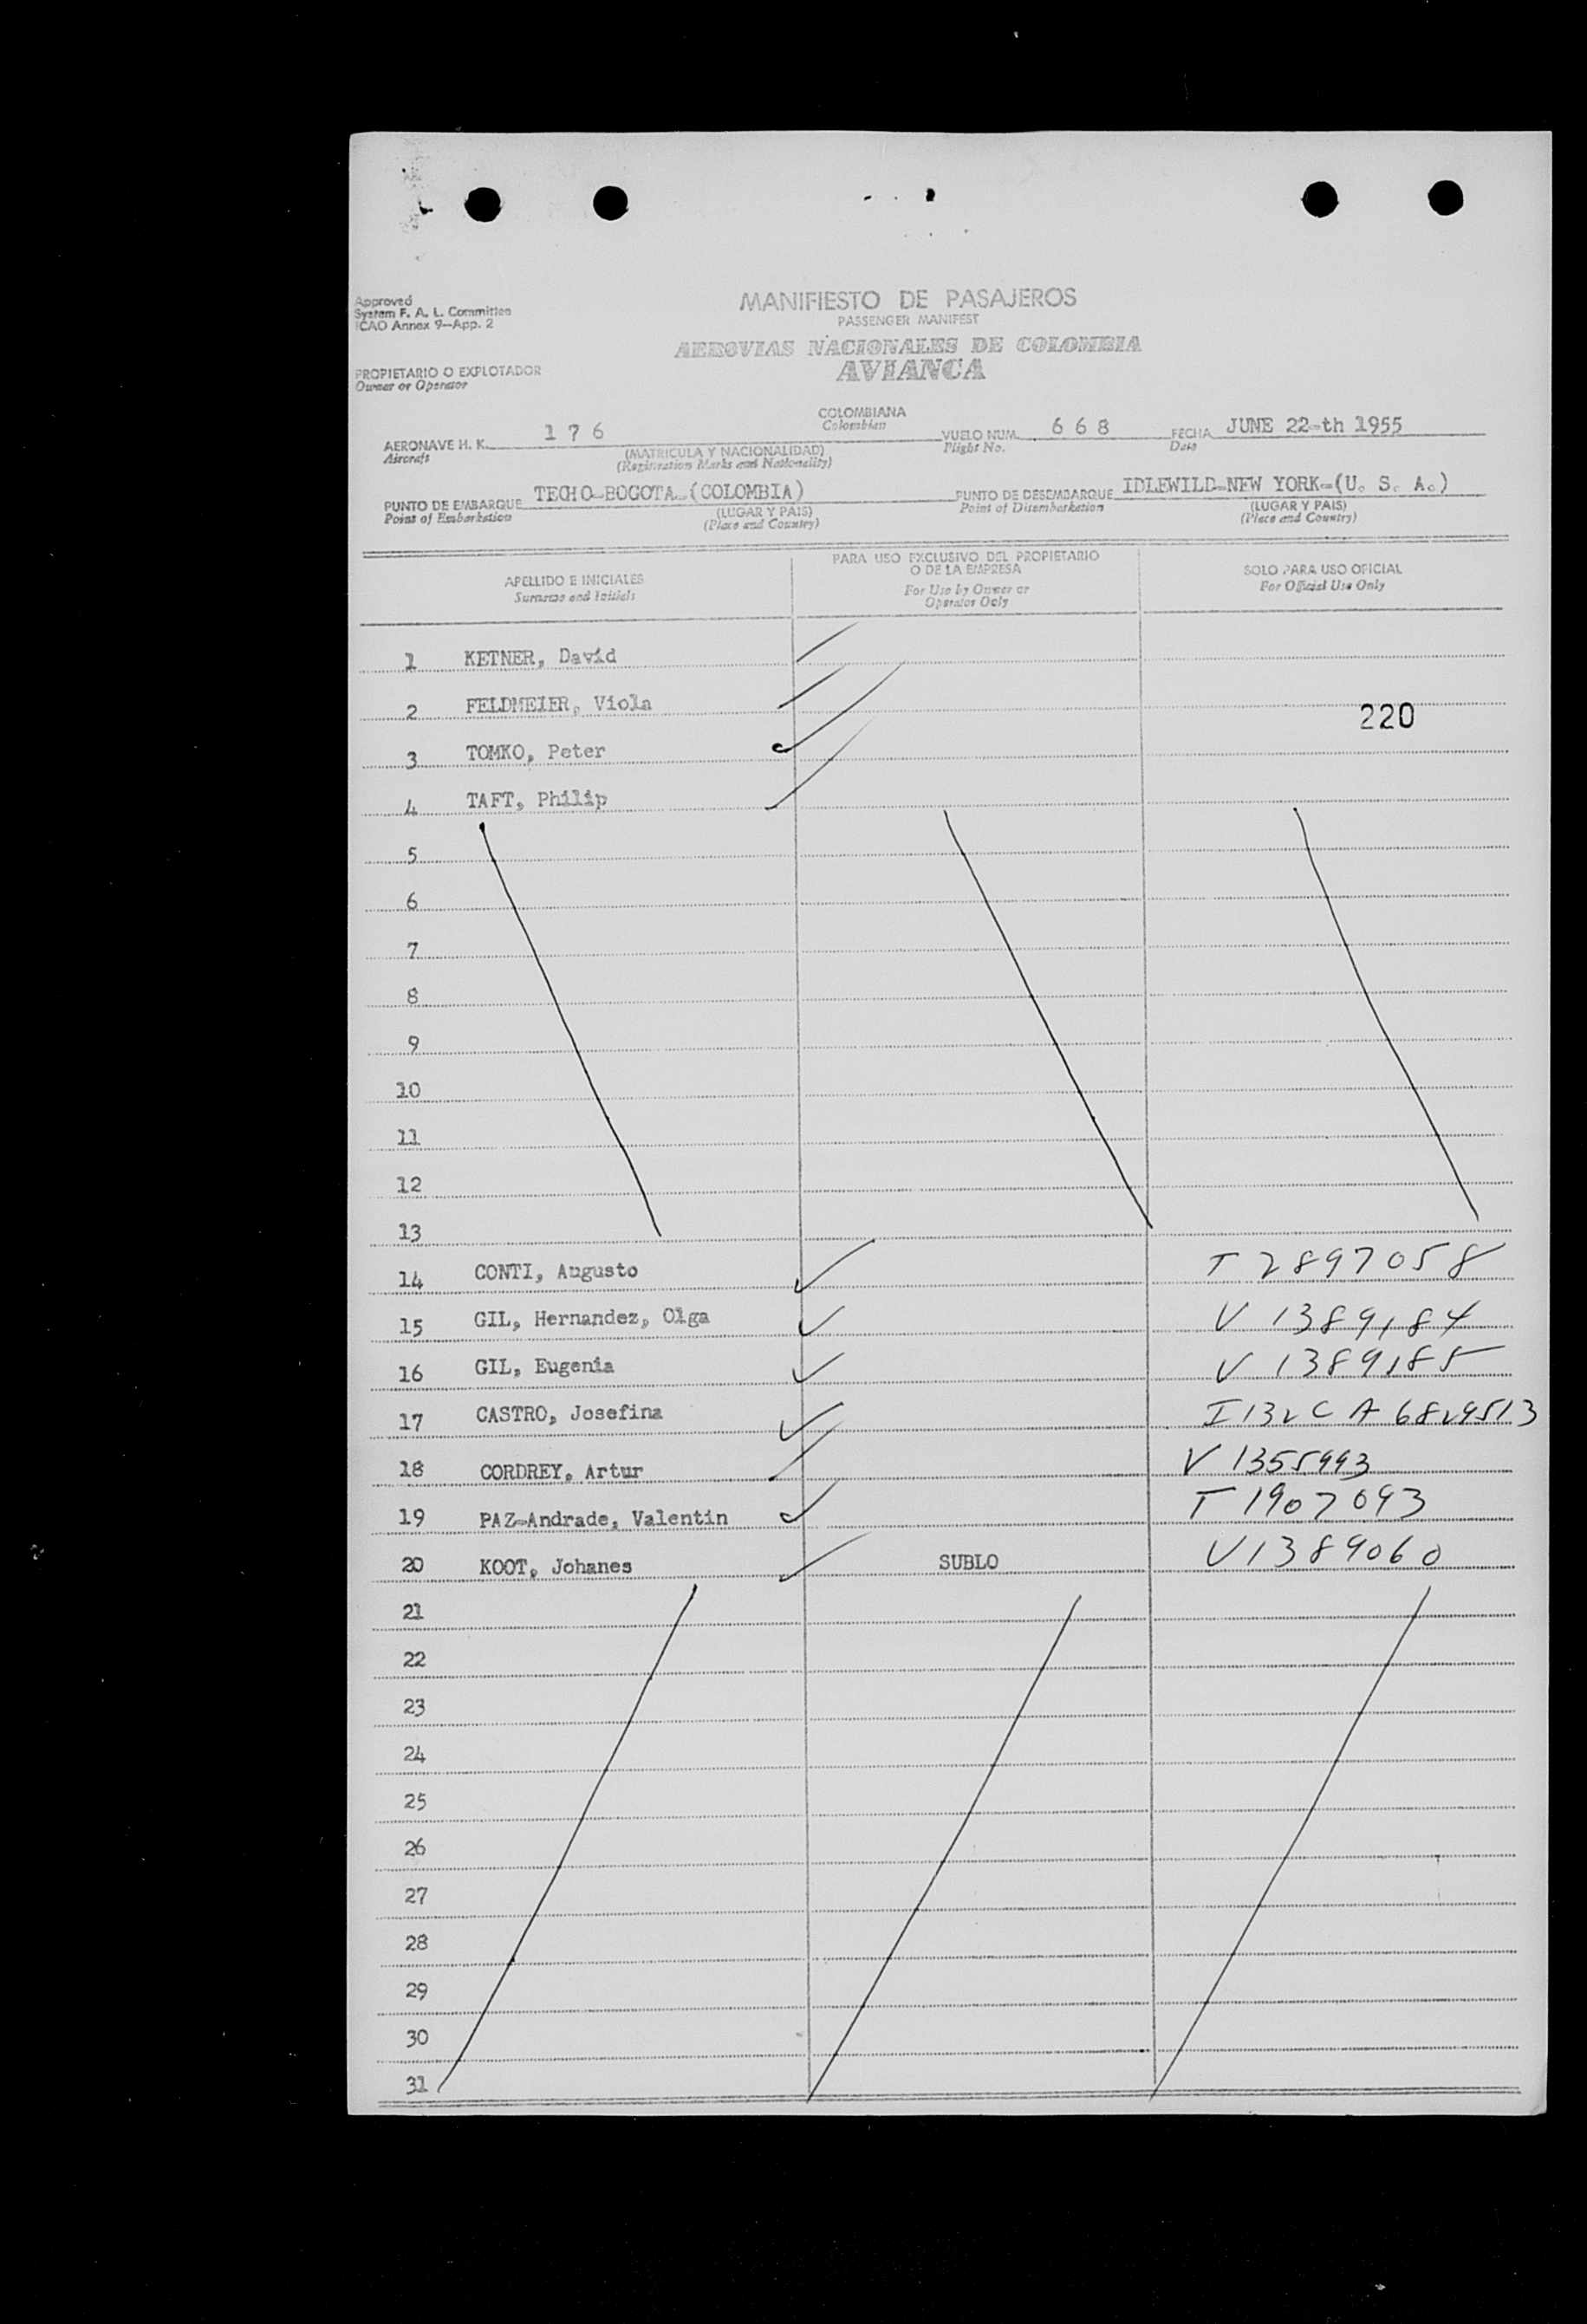 Approved
System F. A. L. Committee
ICAO Annex 9—App. 2
MANIFIESTO DE PASAJEROS
PASSENGER MANIFEST
AEROVIAS NACIONALES DE COLOMBIA
AVIANCA
PROPIETARIO O EXPLOTADOR
Owner or Operator
AERONAVE H. K. 1 7 6 COLOMBIANA VUELO NUM. 6 6 8 FECHA JUNE 22-th 1955
Aircraft (MATRICULA Y NACIONALIDAD) Colombian Flight No. Date
(Registration Marks and Nationality)
PUNTO DE EMBARQUE TECHO-BOGOTA-(COLOMBIA) PUNTO DE DESEMBARQUE IDLEWILD-NEW YORK-(U. S. A.)
Point of Embarkation (LUGAR Y PAIS) Point of Disembarkation (LUGAR Y PAIS)
(Place and Country) (Place and Country)
APELLIDO E INICIALES PARA USO EXCLUSIVO DEL PROPIETARIO SOLO PARA USO OFICIAL
Surname and Initials O DE LA EMPRESA For Official Use Only
For Use by Owner or
Operator Only
1 KETNER, David
2 FELDMEIER, Viola 220
3 TOMKO, Peter
4 TAFT, Philip
5
6
7
8
9
10
11
12
13
14 CONTI, Augusto T 2897058
15 GIL, Hernandez, Olga V 1389184
16 GIL, Eugenia V 1389185
17 CASTRO, Josefina I 132 C A 6829513
18 CORDREY, Artur V 1355993
19 PAZ-Andrade, Valentin T 1907093
20 KOOT, Johanes SUBLO V1389060
21
22
23
24
25
26
27
28
29
30
31